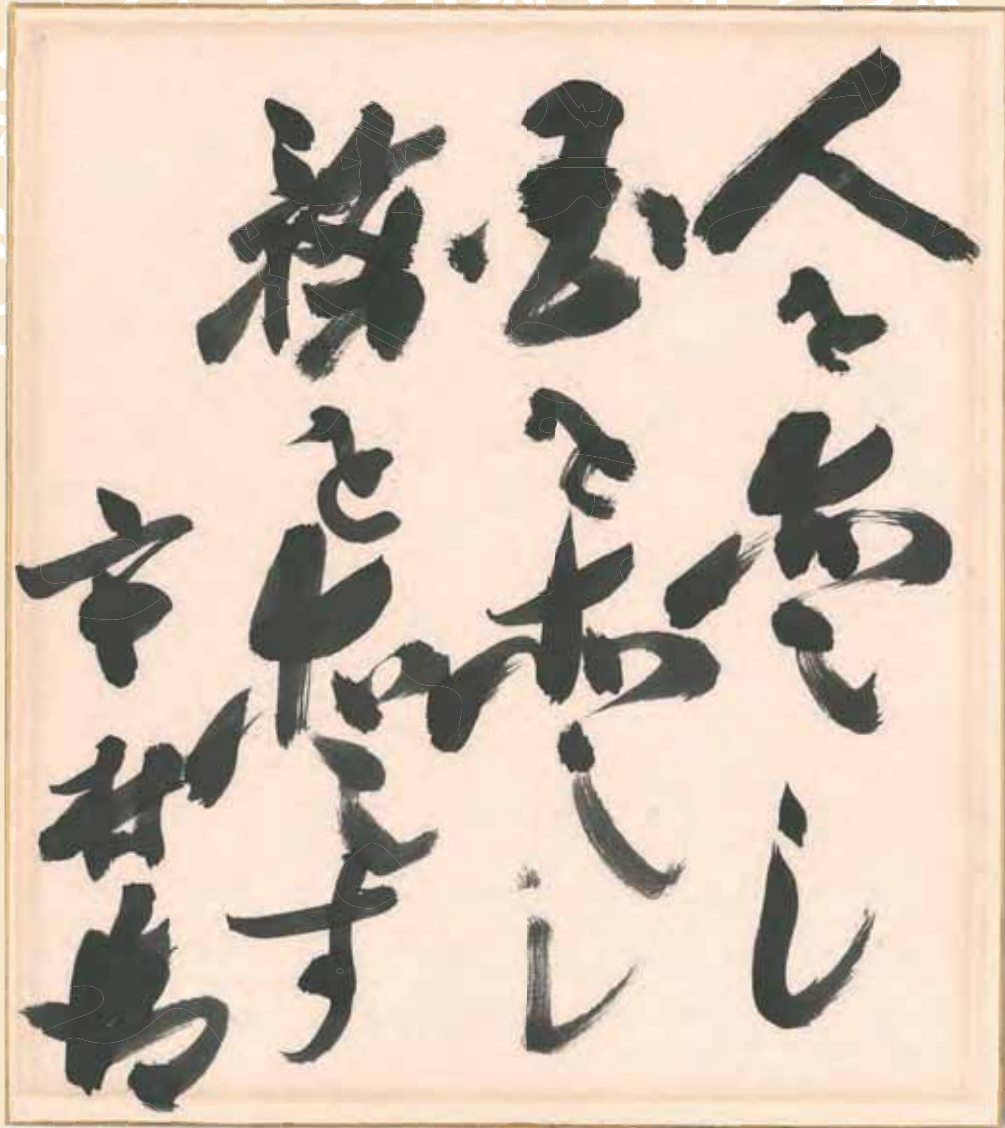 人を愛し
国を愛し
務を愛す
市村清